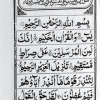 بِسْمِ اللهِ الرَّحْمٰنِ الرَّحِيْمِ
يٰسٓ وَالْقُرْاٰنِ الْحَكِيْمِ اِنَّكَ
لَمِنَ الْمُرْسَلِيْنَ عَلٰى صِرَاطٍ
مُّسْتَقِيْمٍ تَنْزِيْلَ الْعَزِيْزِ الرَّحِيْمِ
لِتُنْذِرَ قَوْمًا مَّآ اُنْذِرَ اٰبَآؤُهُمْ
فَهُمْ غٰفِلُوْنَ لَقَدْ حَقَّ الْقَوْلُ